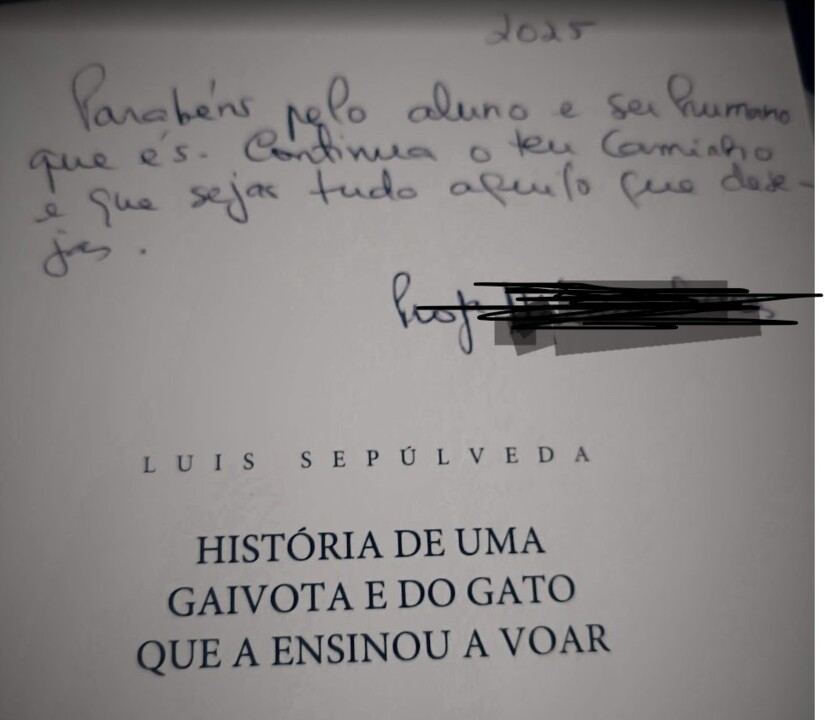 2025
Parabéns pelo aluno e ser humano
que és. Continua o teu caminho
e que sejas tudo aquilo que dese-
jas.
Prof
LUIS SEPÚLVEDA
HISTÓRIA DE UMA
GAIVOTA E DO GATO
QUE A ENSINOU A VOAR